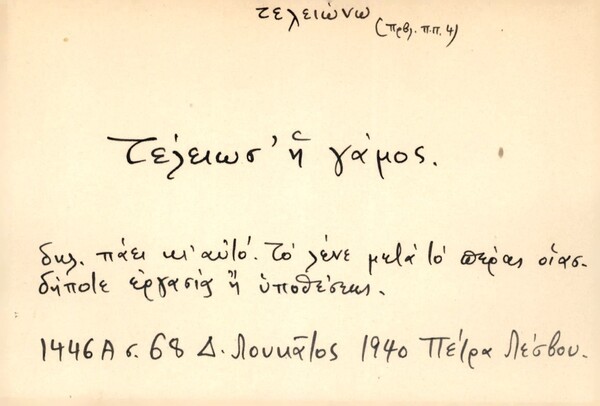 τελειώνω
(πρβλ. π.π. 4)
Τέλειωσ' ἡ γάμος.
δηλ. πάει κι' αὐτό. Τό λένε μετά τό πέρας οἱασ-
δήποτε ἐργασίας ἤ ὑποθέσεως.
1446Α σ. 68 Δ. Λουκᾶτος 1940 Πέτρα Λέσβου.